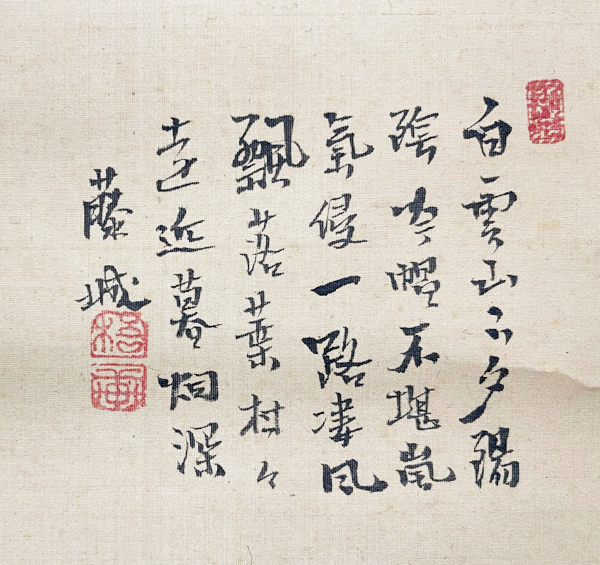 白雲山下夕陽
陰吟帽不堪嵐
氣侵一路凄風
飄落葉村々
遠近暮烟深
藤城